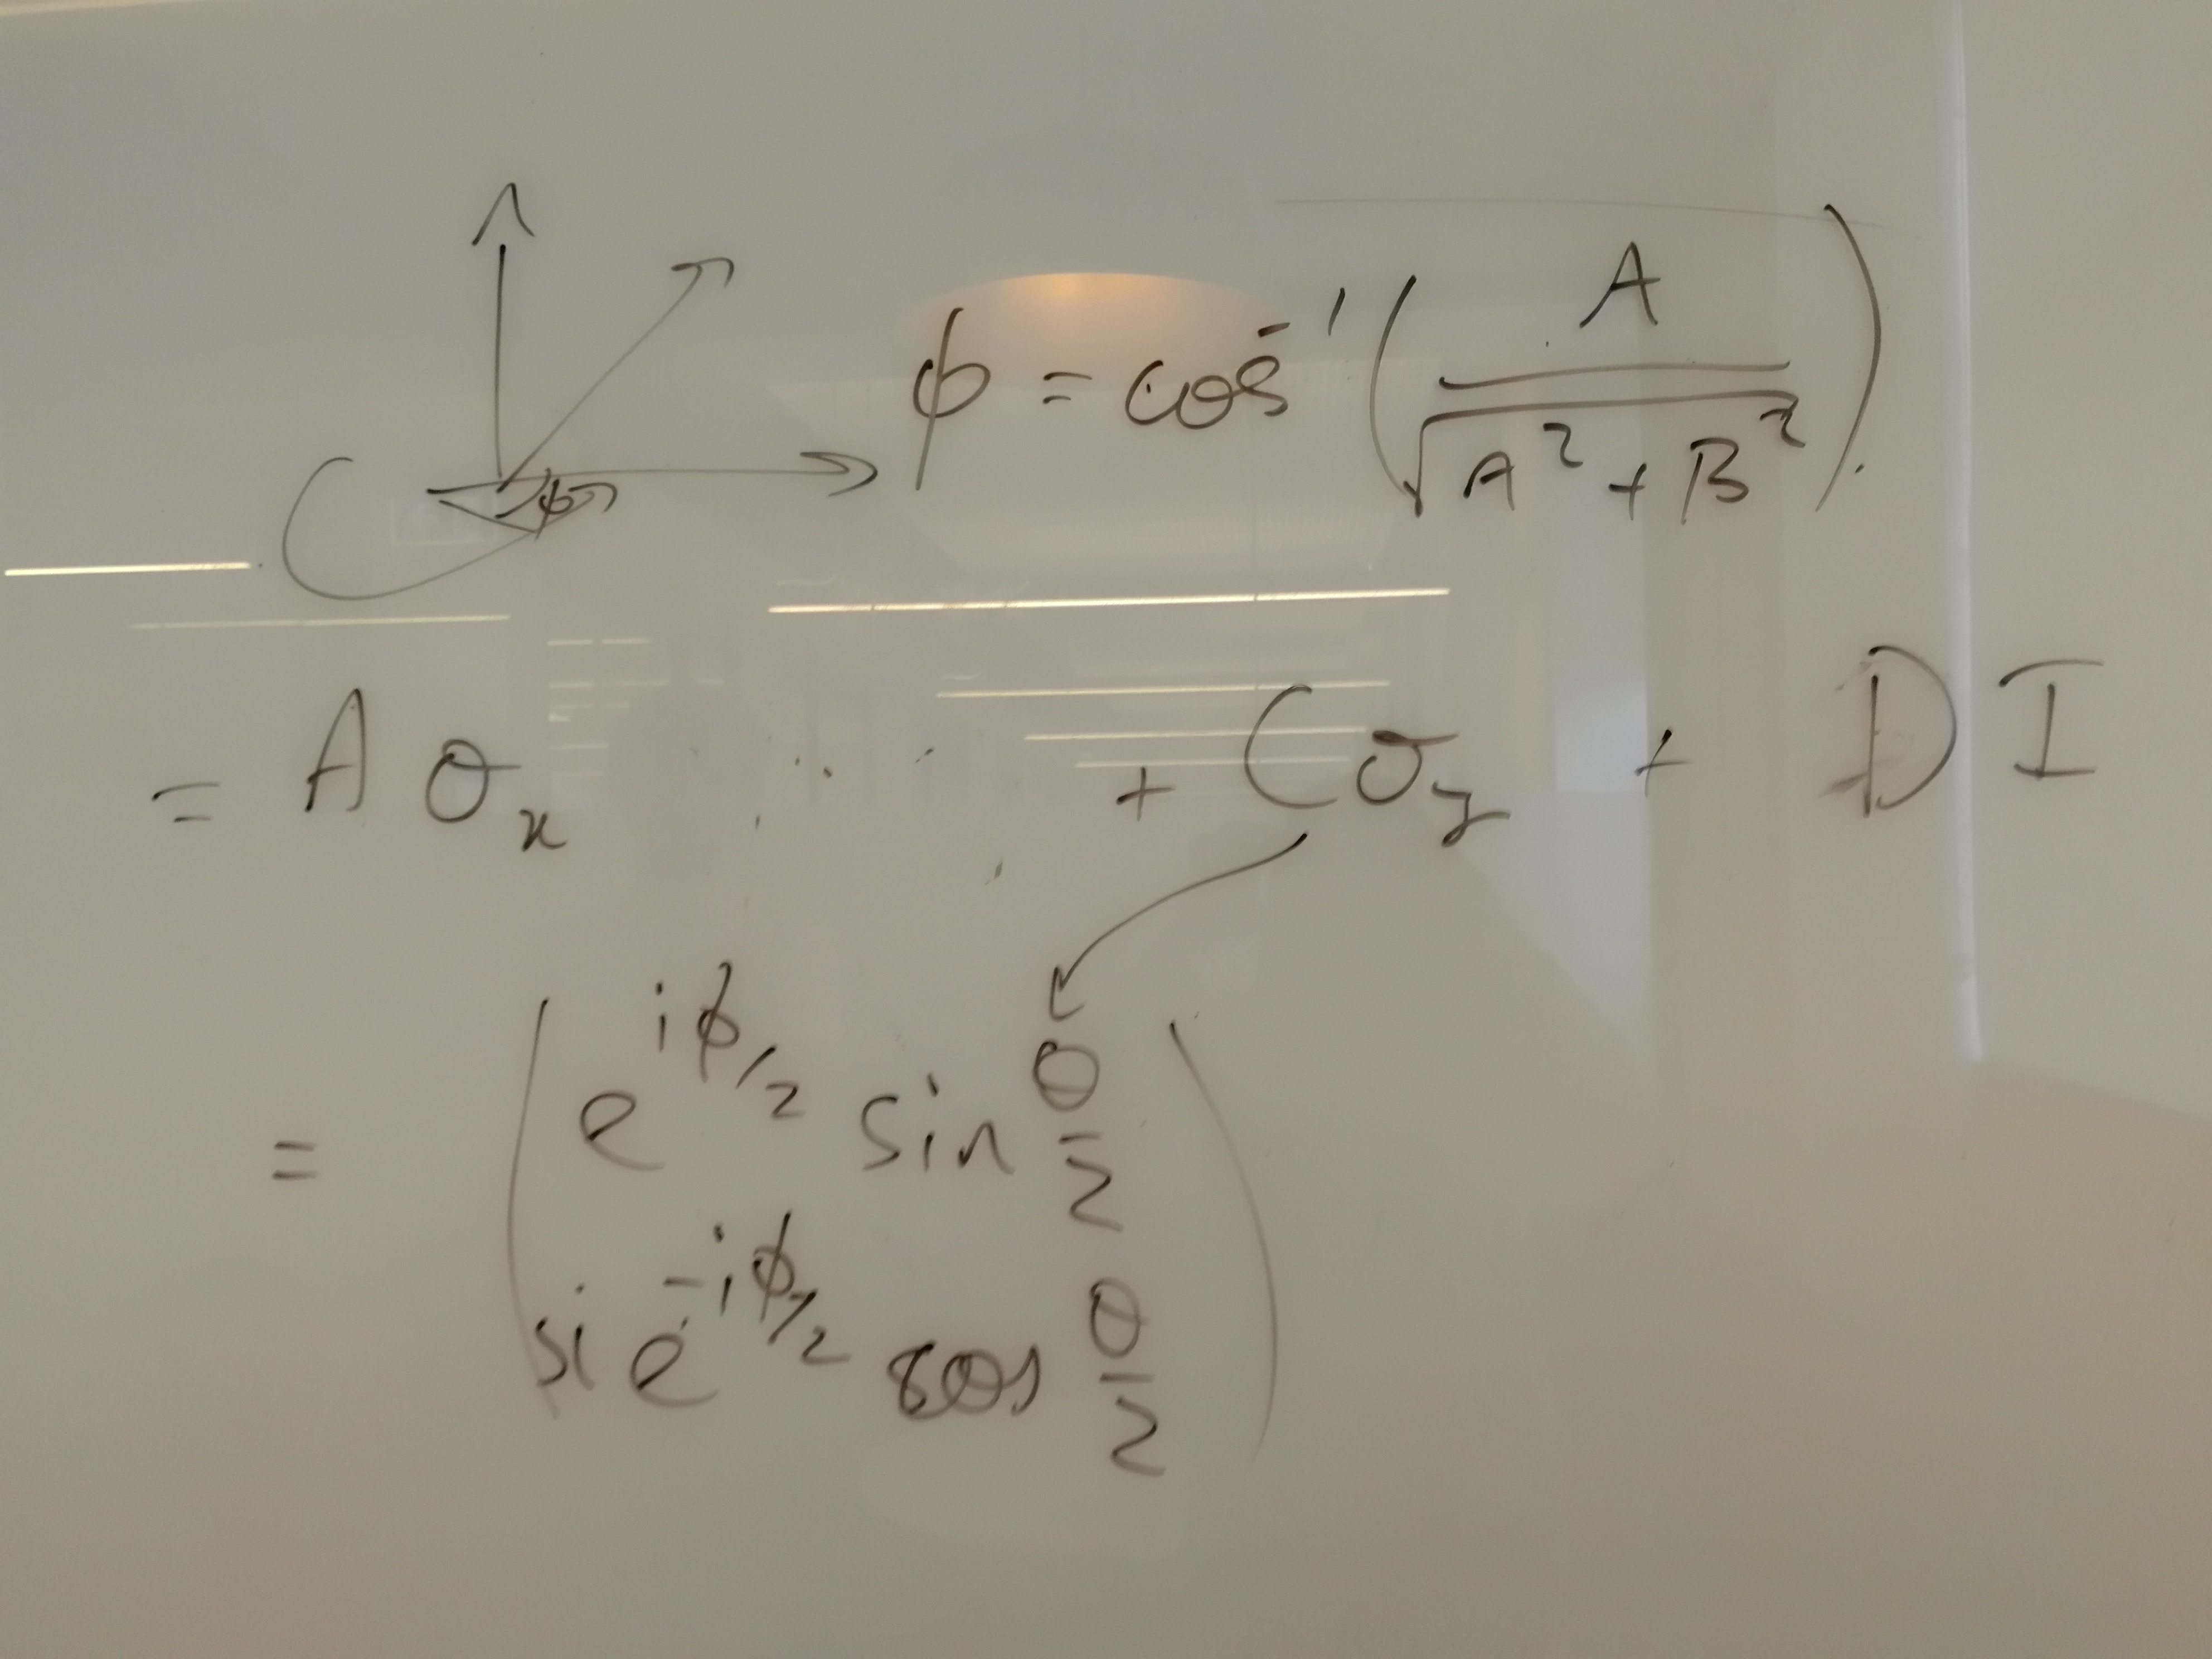 ϕ = cos⁻¹ (A / √(A² + B²)).
ϕ
= A σₓ + C σ_y + D I
= ( e^{iϕ/2} sin θ/2
si e^{-iϕ/2} cos θ/2 )